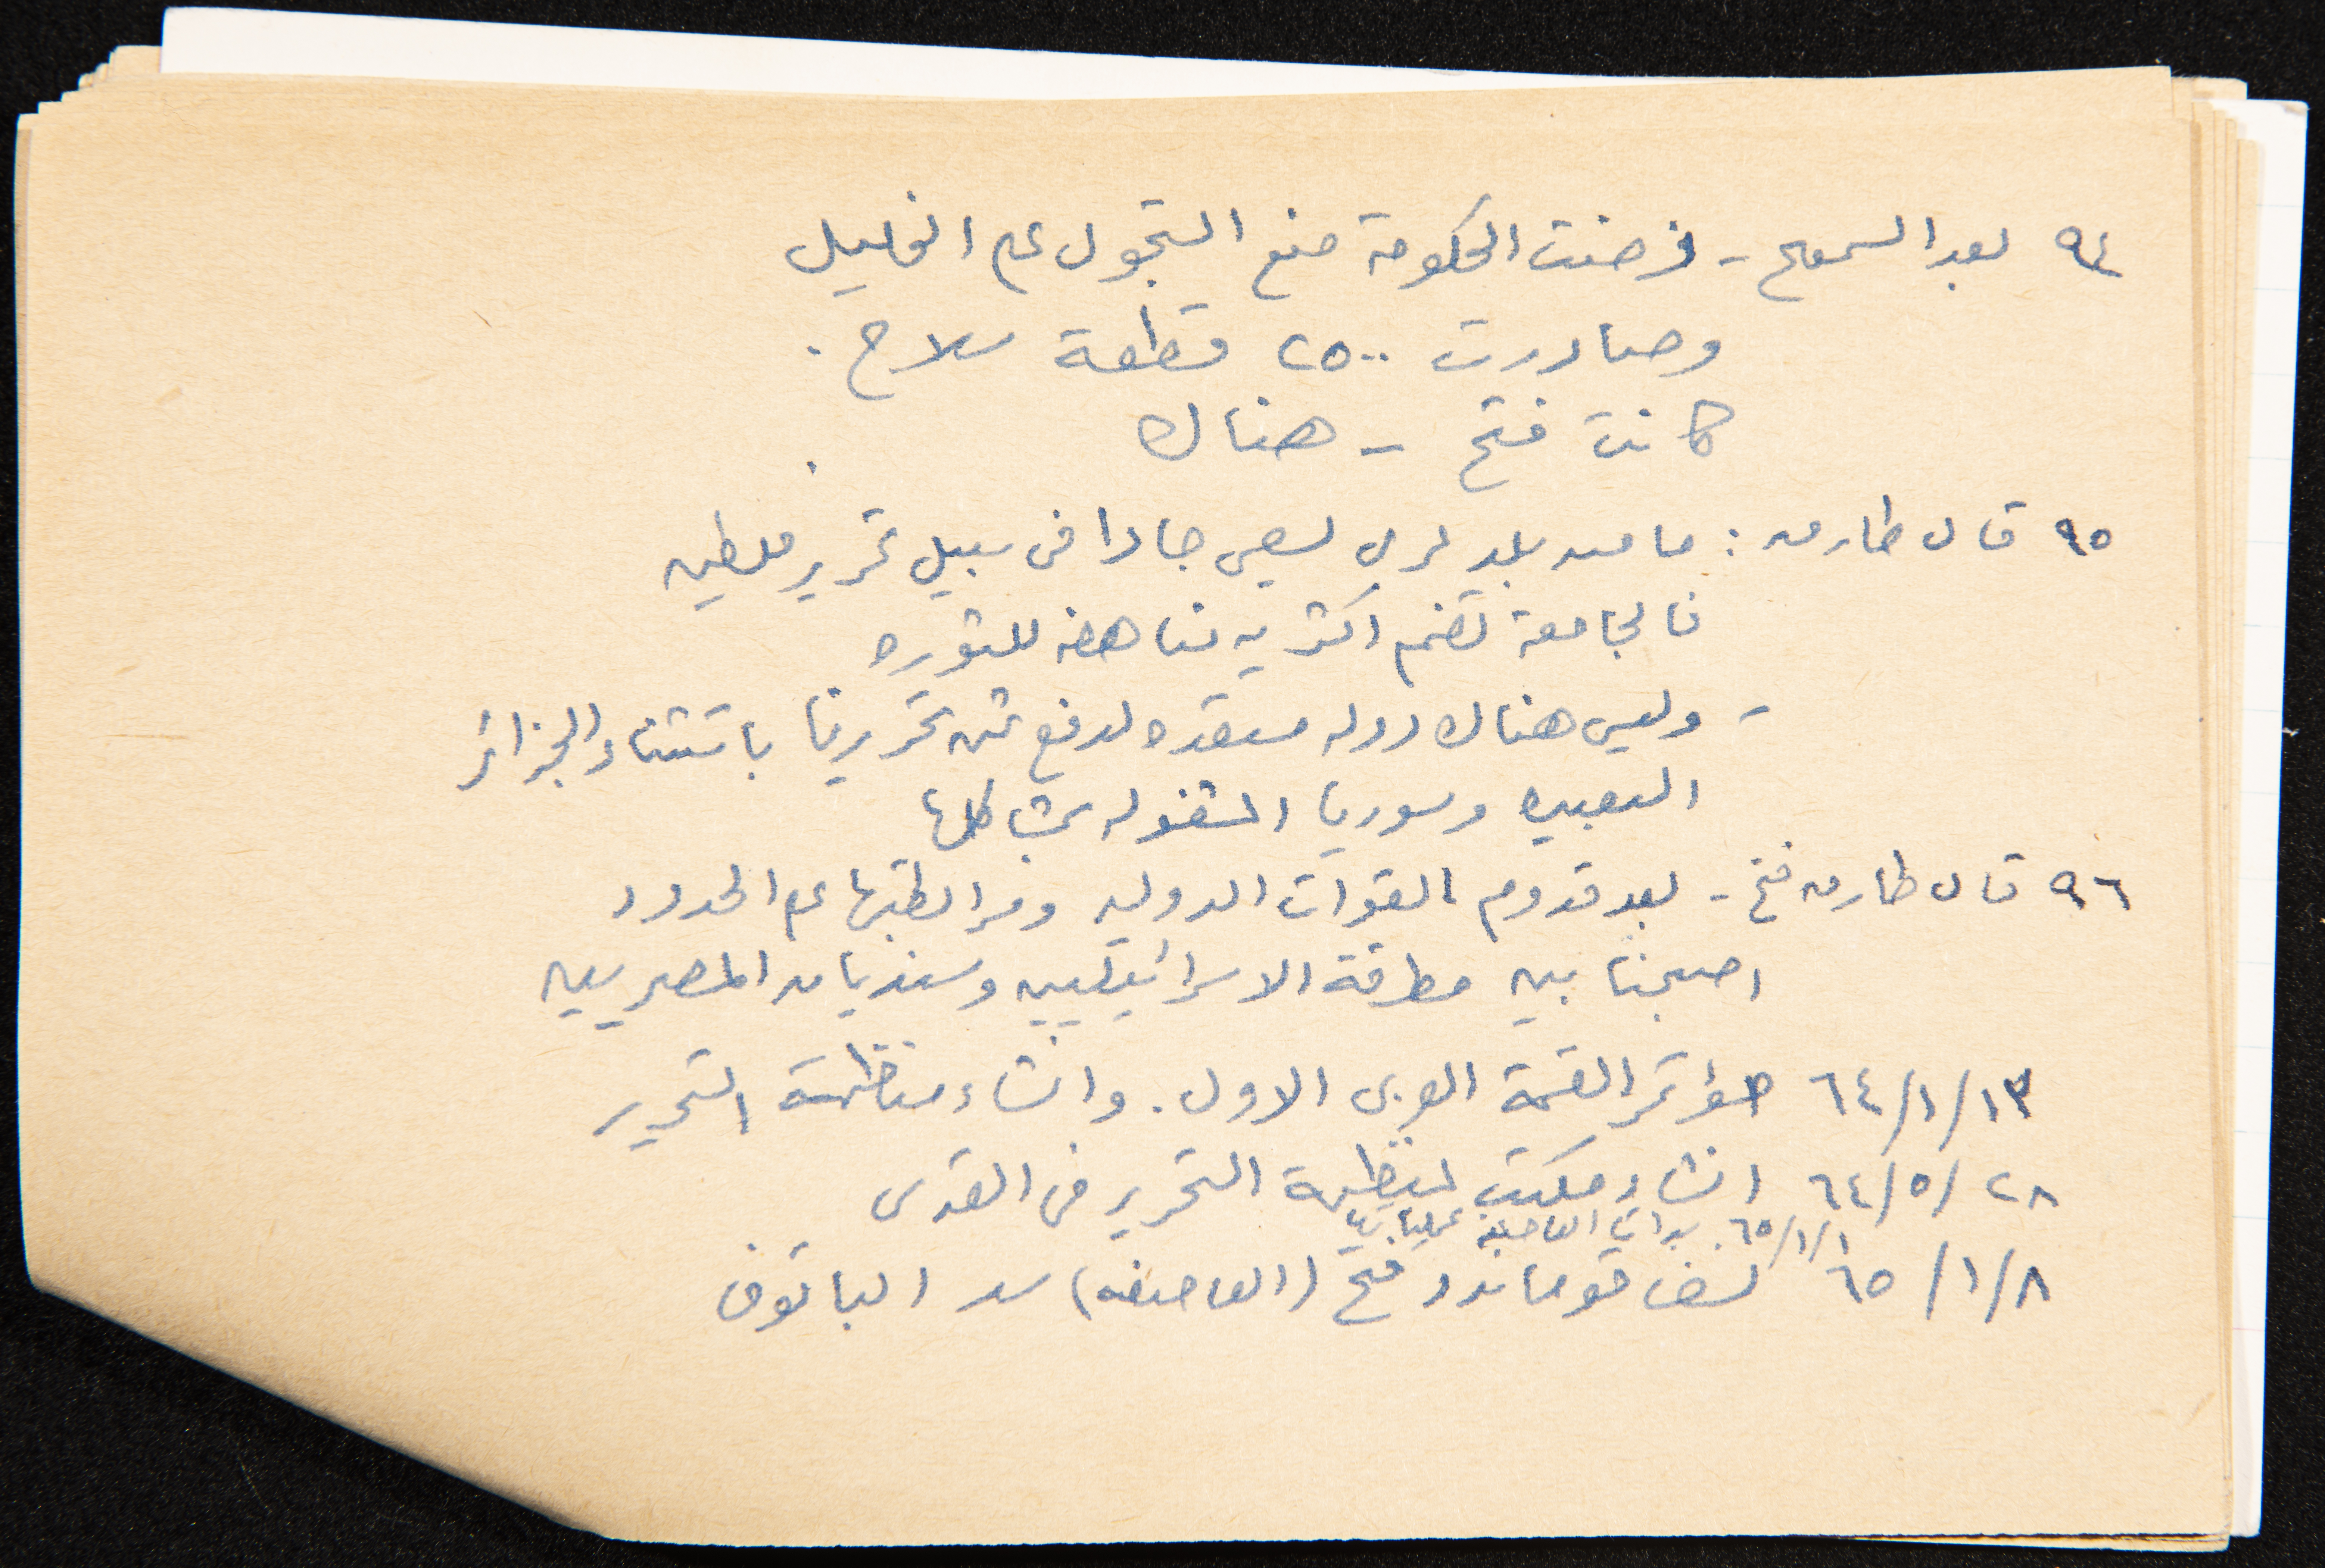 ٩٤ بعد السموع - فرضت الحكومة منع التجول على الخليل
وصادرت ٢٥٠٠ قطعة سلاح .
كانت فتح - هناك
٩٥ قال طارق : ما من بلد عربي يسعى جادا في سبيل تحرير فلسطين
فالجامعة تضم اكثريه مناهضه للثوره
- وليس هناك دوله مستعده لدفع ثمن تحريرنا باستثناء الجزائر
البعيده وسوريا المشغوله بمشاكلها
٩٦ قال طارق فتح - بعد قدوم القوات الدوليه ومرابطتها على الحدود
اصبحنا بين مطرقة الاسرائيليين وسنديان المصريين
٦٤/١/١٣ مؤتمر القمة العربي الاول . وانشاء منظمة التحرير
٦٤/٥/٢٨ انشاء مكتب لمنظمة التحرير في القدس
٦٥/١/١ . بدات العاصفة عملياتها
٦٥/١/٨ نسف قوماندو فتح (العاصفه) سد الباتوف